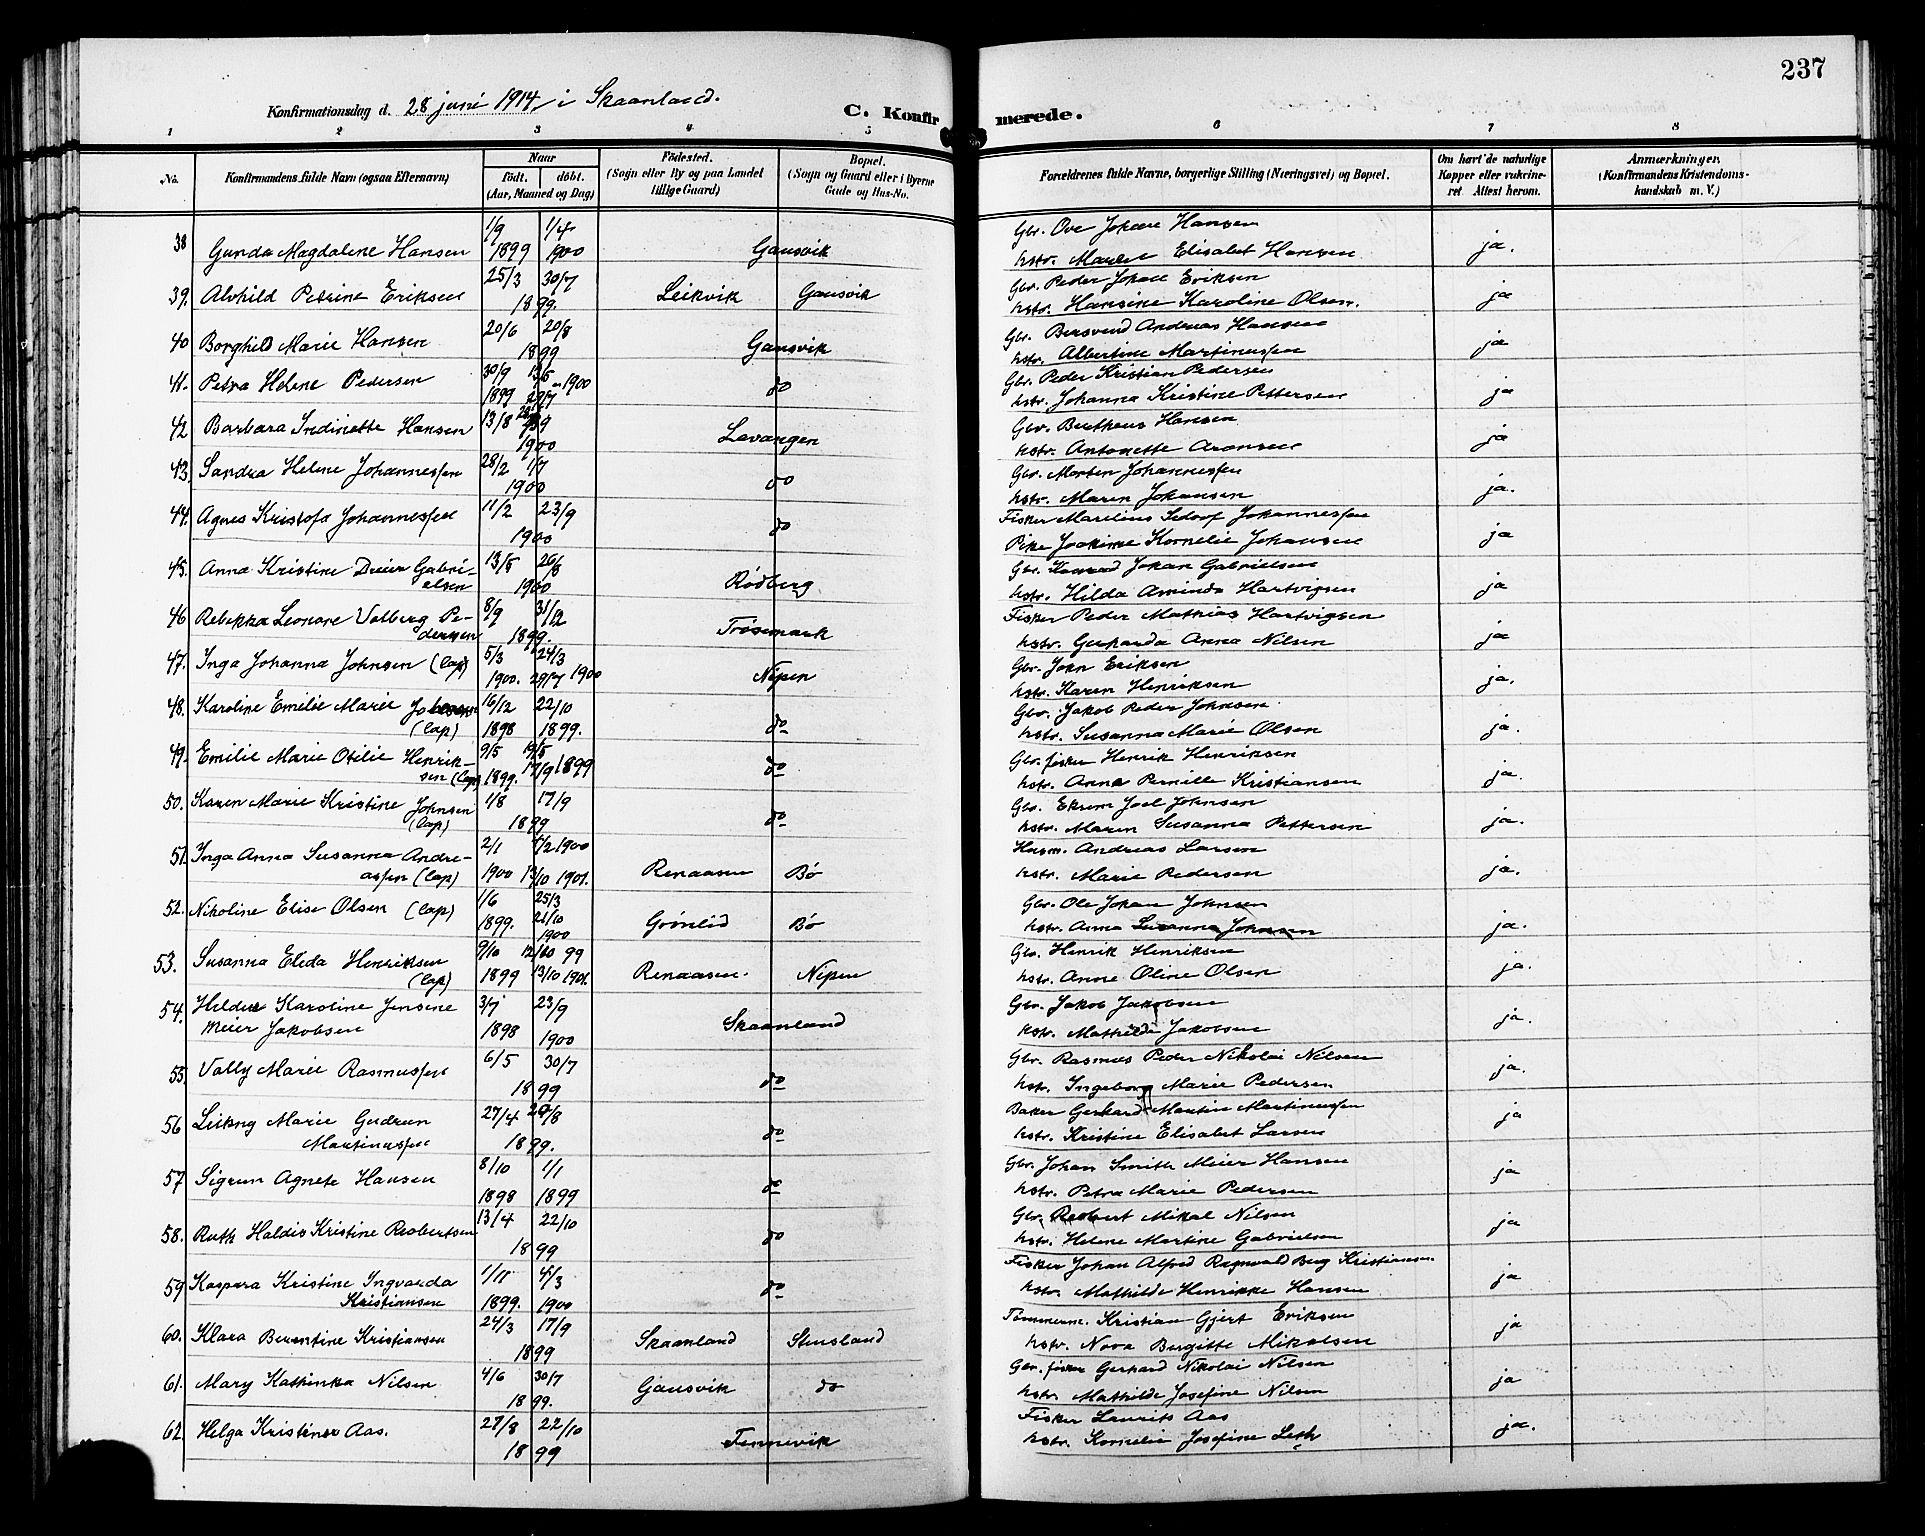 237
Konfirmationsdag d. 28 juni 1914 i Skaanland.
C. Konfirmerede.
1 2 3 4 5 6 7 8
No.
Konfirmandens fulde Navn (ogsaa Efternavn)
Naar
födt. döbt.
(Aar, Maaned og Dag)
Födested.
(Sogn eller By og paa Landet
tillige Gaard)
Bopæl.
(Sogn og Gaard eller i Byerne
Gade og Hus-No.
Forældrenes fulde Navne, borgerlige Stilling (Næringsvei) og Bopæl.
Om havt de naturlige
Kopper eller vakcine-
ret. Attest herom.
Anmærkninger.
(Konfirmandens Kristendoms-
kundskab m. V.)
38 Gunda Magdalene Hansen 1/9 1899 1/4 1900 Gausvik
Gbr. Ove Johan Hansen
hstr. Maret Elisabet Hansen ja.
39. Alvhild Petrine Eriksen 25/3 30/7 1899. Leikvik Gausvik
Gbr. Peder Johan Eriksen
hstr. Hansine Karoline Olsen. ja
40 Borghild Marie Hansen 20/6 20/8 1899 Gausvik
Gbr. Andreas Hansen
hstr. Albertine Martinussen ja
41. Petra Helene Pedersen 30/9 1899 1900 do
Gbr. Peder Kristian Pedersen
hstr. Johanna Kristine Pettersen ja
42 Barbara Hansen 13/8 1900 Lavangen
Gbr. Bertheus Hansen
hstr. Antonette Aronsen ja
43. Sandra Helene Johannessen 28/2 1/7 1900 do
Gbr. Morten Johannessen
hstr. Maren Johansen ja.
44. Agnes Kristofa Johannessen 11/2 23/9 1900 do
Fisker Marelius Johannessen
Pike Joakime Kornelie Johansen ja
45. Anna Kristine Dreier Gabri-
elsen 13/5 26/8 1900 Rødberg
Gbr. Konrad Johan Gabrielsen
hstr. Hilda Aminda Hartvigsen ja
46 Rebekka Leonore Valberg Pe-
dersen 8/9 31/12 1899. Trøsemark
Fisker Peder Mathias Hartvigsen
hstr. Gerharda Anna Nilsen ja
47. Inga Johanna Johnsen (lap) 5/3 1900. 24/3 29/7 1900 Nipen
Gbr. John Eriksen
hstr. Karen Henriksen ja.
48. Karoline Emilie Marie
(lap) 16/12 1898 22/10 1899. do
Gbr. Jakob Peder Johnsen
hstr. Susanna Marie Olsen ja.
49. Emilie Marie Otilie Henrik-
sen (lap) 9/5 1899. 19/5 17/9 1899 do
Gbr. fisker Henrik Henriksen
hstr. Anna Pernille Kristiansen ja.
50. Karen Marie Kristine Johnsen
(lap) 1/8 17/9 1899 do
Gbr. Joel Johnsen
hstr. Maren Susanna Pettersen ja.
51. Inga Anna Susanna Andre-
assen (lap) 2/1 1900 1900 1901. Renaasen Bø
Husm. Andreas Larsen
hstr. Marie Pedersen ja.
52. Nikoline Elise Olsen (lap) 1/6 1899. 25/3 21/10 1900 Grönlid Bø
Gbr. Ole Johan Johnsen
hstr. Anna Susanna Johnsen ja.
53. Susanna Eleda Henriksen
(lap) 9/10 1899 12/10 99 13/10 1901. Renaasen. Nipen
Gbr. Henrik Henriksen
hstr. Anne Oline Olsen ja.
54. Helder Karoline Jensine
Meier Jakobsen 3/7 1898 23/9 1900 Skaanland
Gbr. Jakob Jakobsen
hstr. Mathilde Jakobsen ja.
55. Vally Marie Rasmussen 6/5 30/7 1899 do
Gbr. Rasmus Peder Nikolai Nilsen
hstr. Ingeborg Marie Pedersen ja.
56 Leikny Marie Gudrun
Martinussen 27/4 20/8 1899. do
Baker Gerhard Martin Martinussen
hstr. Kristine Elisabet Larsen ja
57 Sigrun Agnete Hansen 8/10 1898 1/1 1899 do
Gbr. Johan Smith Meier Hansen
hstr. Petra Marie Pedersen ja
58. Ruth Haldis Kristine Reobertsen 13/4 22/10 1899 do
Gbr. Reobert Mikal Nilsen
hstr. Helene Martine Gabrielsen ja
59 Kaspara Kristine Ingvarda
Kristiansen 1/11 1899. 4/3 1900 do
Fisker Johan Alfred Ragnvald Berg Kristiansen
hstr. Mathilde Henrikke Hansen ja
60. Klara Berentine Kristiansen 24/3 17/9 1899 Skaanland Stensland
Tømmerm. Kristian Gjert Eriksen
hstr. Nora Bergitte Mikalsen ja
61. Mary Kathinka Nilsen 4/6 30/7 1899. Gausvik do
Gbr. fisker Gerhard Nikolai Nilsen
hstr. Mathilde Josefine Nilsen ja
62. Helga Kristine Aas. 27/8 22/10 1899 Tennevik
Fisker Laurits Aas
hstr. Kornelie Josefine Leth ja.